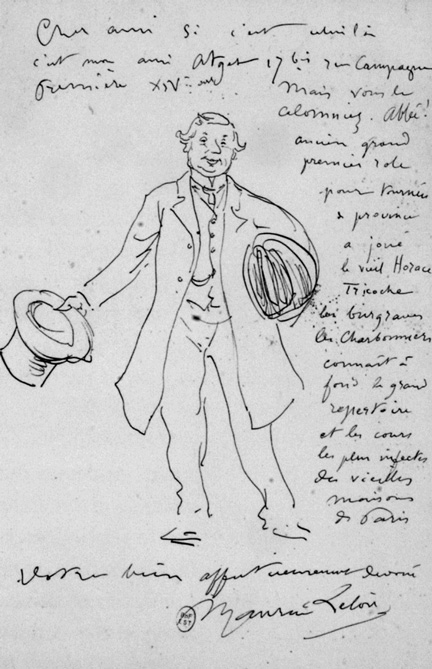 Cher ami si c'est celui là
c'est mon ami Atget 17 bis rue Campagne
Première XIVe arrd
Mais vous le
calomniez. Abbé !
ancien grand
premier role
pour tournées
de province
a joué
le vieil Horace
Tricoche
les burgraves
les Charbonniers
connait à
fond le grand
repertoire
et les cours
les plus infectes
des vieilles
maisons
de Paris
Votre bien affectueusement dévoué
Maurice Leloir